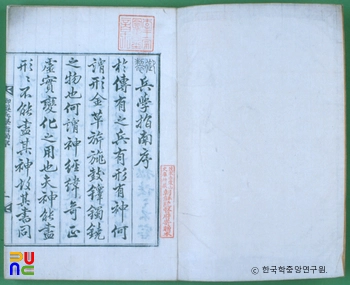 兵學指南序
於傳有之兵有形有神何
謂形金革旂旄鼓鐸鐲鐃
之物也何謂神經緯奇正
虛實變化之用也夫神能盡
形形不能盡其神故其書同
ⓒ 한국학중앙연구원